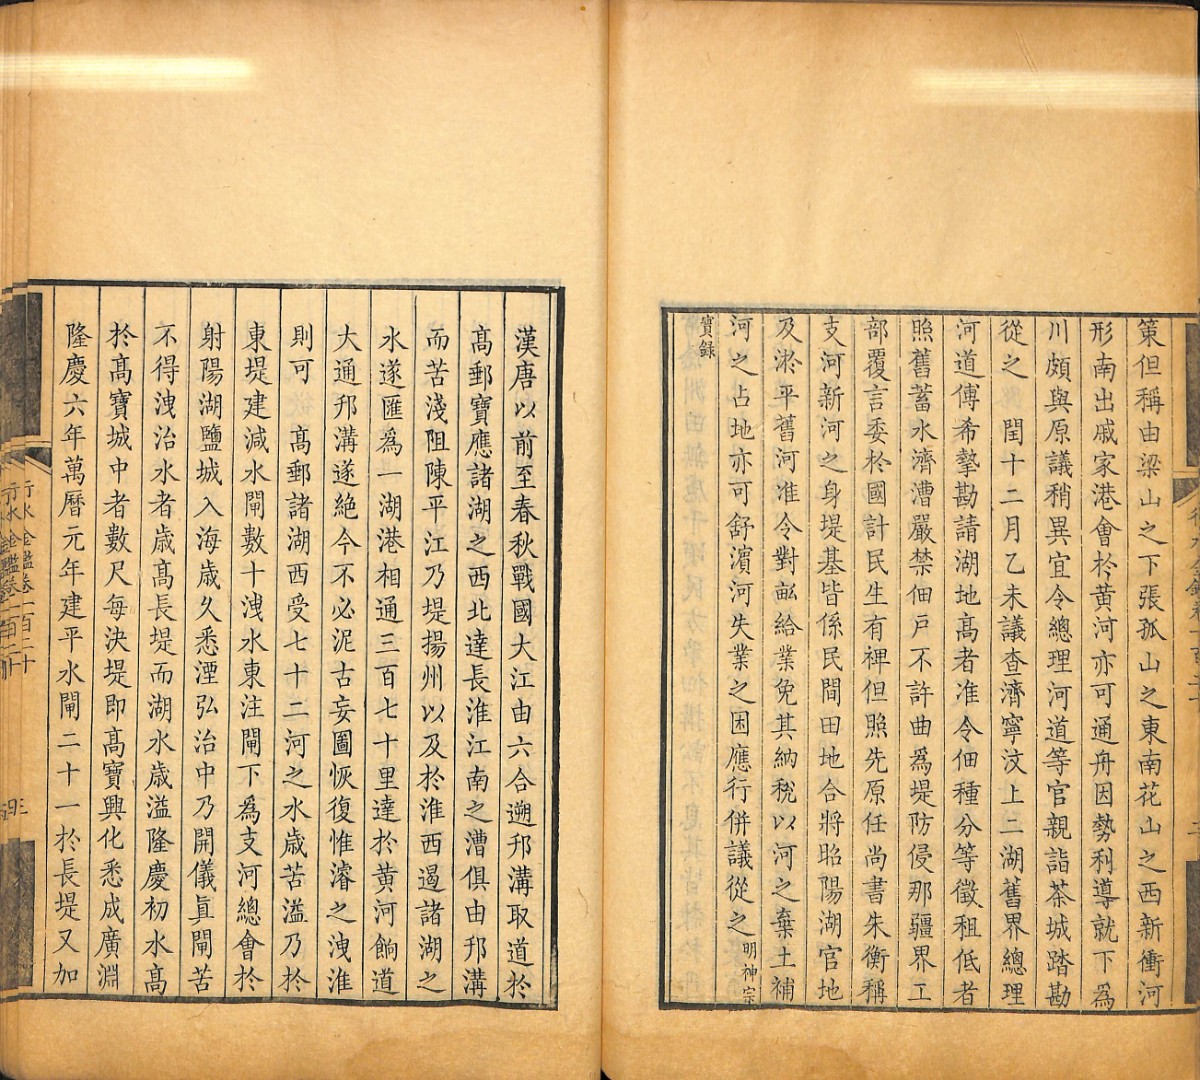 策但稱由梁山之下張孤山之東南花山之西新衝河
形南出戚家港會於黃河亦可通舟因勢利導就下為
川頗與原議稍異宜令總理河道等官親詣茶城踏勘
從之　閏十二月乙未議查濟寧汶上二湖舊界總理
河道傅希摯勘請湖地髙者准令佃種分等徵租低者
照舊蓄水濟漕嚴禁佃戶不許曲爲堤防侵那疆界工
部覆言委於國計民生有裨但照先原任尚書朱衡稱
支河新河之身堤基皆係民間田地合將昭陽湖官地
及淤平舊河准令對畝給業免其納稅以河之棄土補
河之占地亦可舒濱河失業之困應行併議從之明神宗
實錄
漢唐以前至春秋戰國大江由六合遡邗溝取道於
髙郵寶應諸湖之西北達長淮江南之漕俱由邗溝
而苦淺阻陳平江乃堤揚州以及於淮西遏諸湖之
水遂匯爲一湖港相通三百七十里達於黄河餉道
大通邗溝遂絶今不必泥古妄圖恢復惟濬之洩淮
則可　髙郵諸湖西受七十二河之水歳苦溢乃於
東堤建減水閘數十洩水東注閘下爲支河總會於
射陽湖鹽城入海歳久悉湮弘治中乃開儀眞閘苦
不得洩治水者歳髙長堤而湖水歳溢隆慶初水髙
於髙寶城中者數尺每決堤即髙寶興化悉成廣淵
隆慶六年萬曆元年建平水閘二十一於長堤又加
行水金鑑卷一百二十